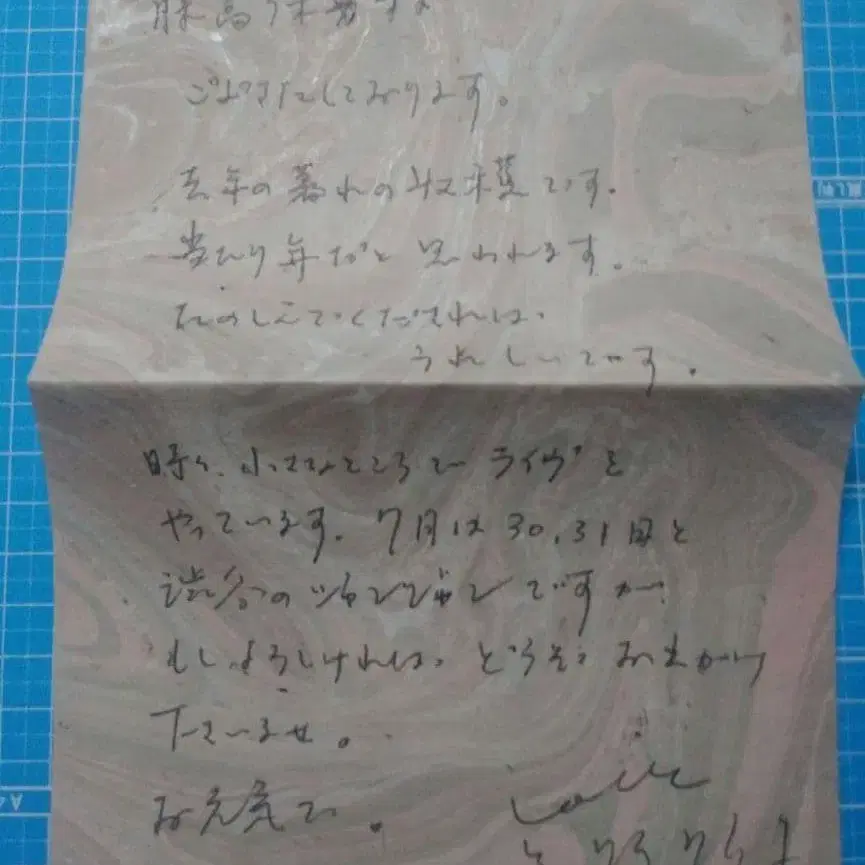 ごぶさたしております。
去年の暮れの収穫です。
当たり年だと思われます。
たのしんでくだされば、
うれしいです。
時々、小さなところでライヴを
やっています。7月は30,31日と
渋谷のジァンジァンですが
もしよろしければ、どうぞおでかけ
下さいませ。
お元気で。